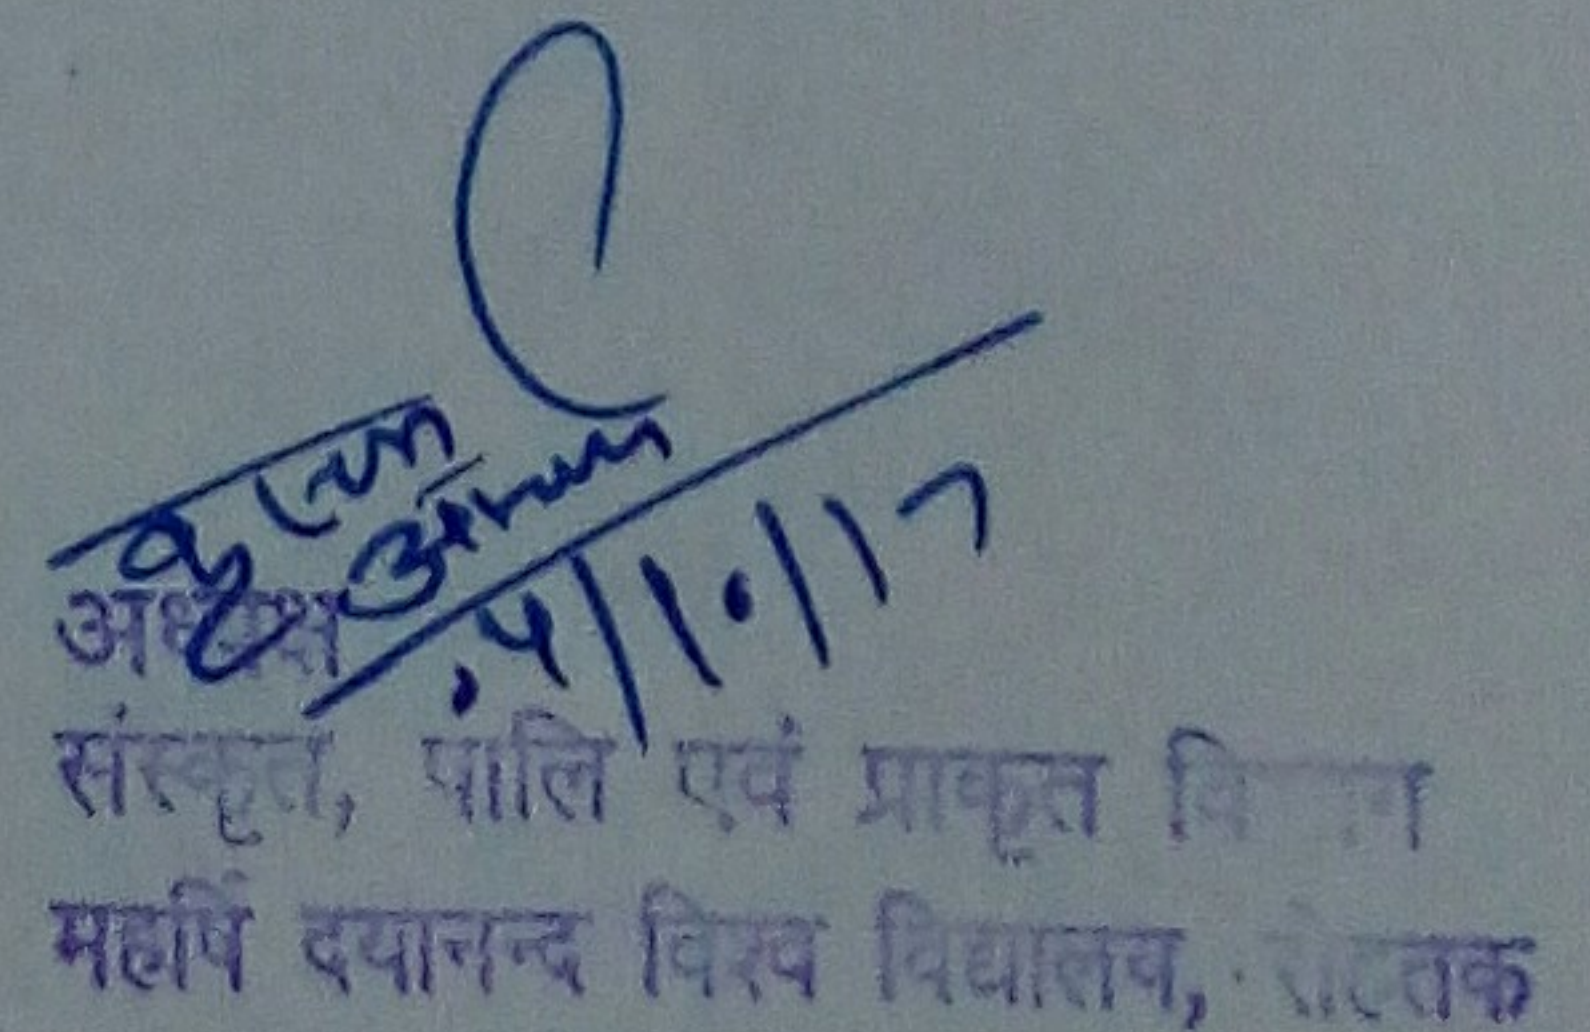 कृष्णा
आचार्य
.4/10/17
अध्यक्ष
संस्कृत, पालि एवं प्राकृत विभाग
महर्षि दयानन्द विश्व विद्यालय, रोहतक